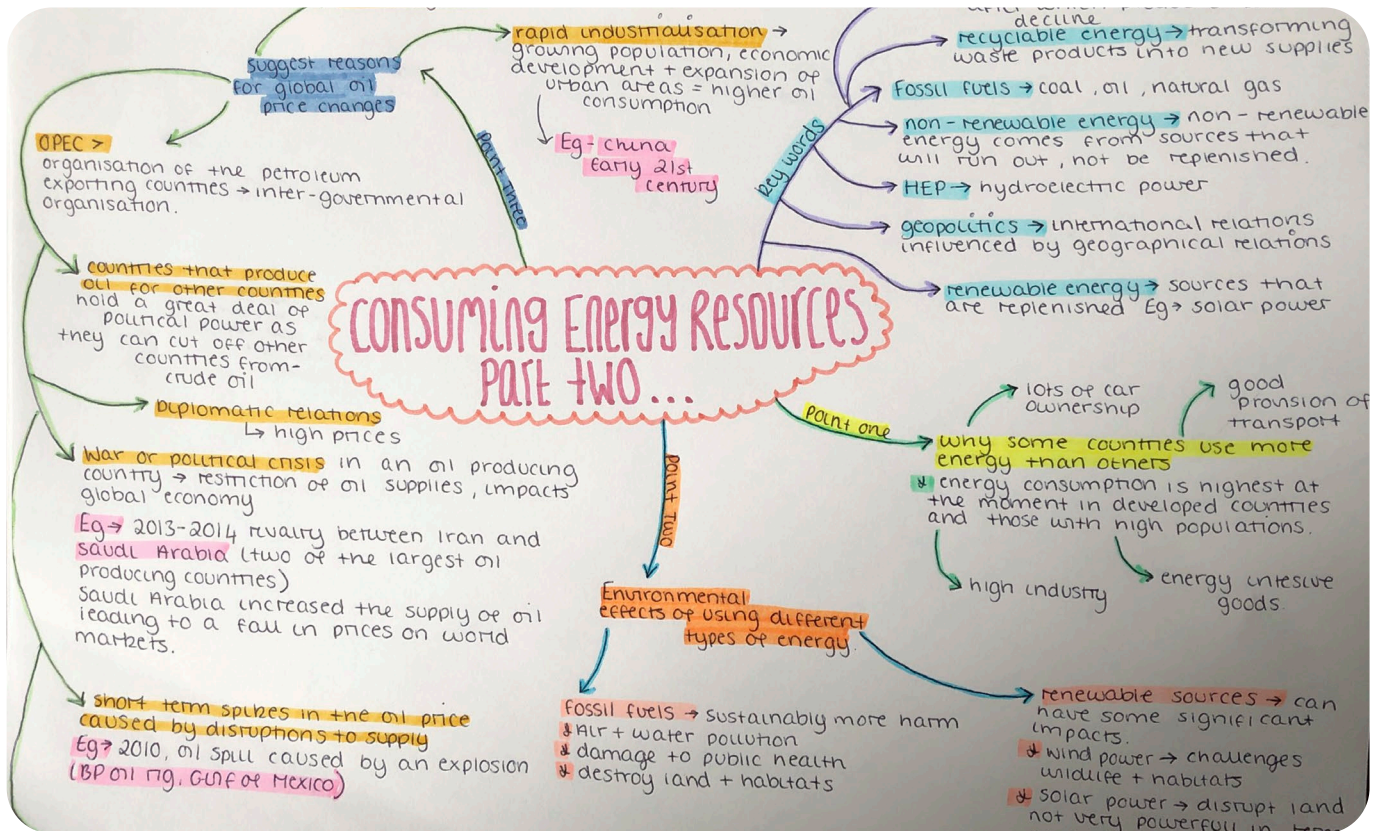 CONSUMING ENERGY RESOURCES
PART TWO...
key words
decline
recyclable energy → transforming
waste products into new supplies
Fossil fuels → coal, oil, natural gas
non-renewable energy → non-renewable
energy comes from sources that
will run out, not be replenished.
HEP → hydroelectric power
geopolitics → international relations
influenced by geographical relations
renewable energy → sources that
are replenished Eg → solar power
point one
why some countries use more
energy than others
lots of car
ownership
good
provision of
transport
energy consumption is highest at
the moment in developed countries
and those with high populations.
high industry
energy intesive
goods.
point two
Environmental
effects of using different
types of energy.
fossil fuels → sustainably more harm
Air + water pollution
damage to public health
destroy land + habitats
renewable sources → can
have some significant
impacts.
wind power → challenges
wildlife + habitats
solar power → disrupt land
not very powerfull in
point three
suggest reasons
for global oil
price changes
rapid industrialisation →
growing population, economic
development + expansion of
urban areas = higher oil
consumption
Eg - china
Early 21st
century
OPEC >
organisation of the petroleum
exporting countries → inter-governmental
organisation.
countries that produce
oil for other countries
hold a great deal of
political power as
they can cut off other
countries from-
crude oil
Diplomatic relations
↳ high prices
War or political crisis in an oil producing
country → restriction of oil supplies, impacts
global economy
Eg → 2013-2014 rivalry between Iran and
Saudi Arabia (two of the largest oil
producing countries)
Saudi Arabia increased the supply of oil
leading to a fall in prices on world
markets.
short term spikes in the oil price
caused by disruptions to supply
Eg → 2010, oil spill caused by an explosion
(BP oil rig, Gulf of Mexico)